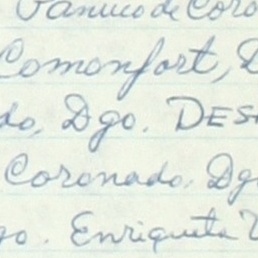 Pánuco de Coro
Comonfort, D
do, Dgo. DES
Coronado, Dgo
go. Enriqueta V